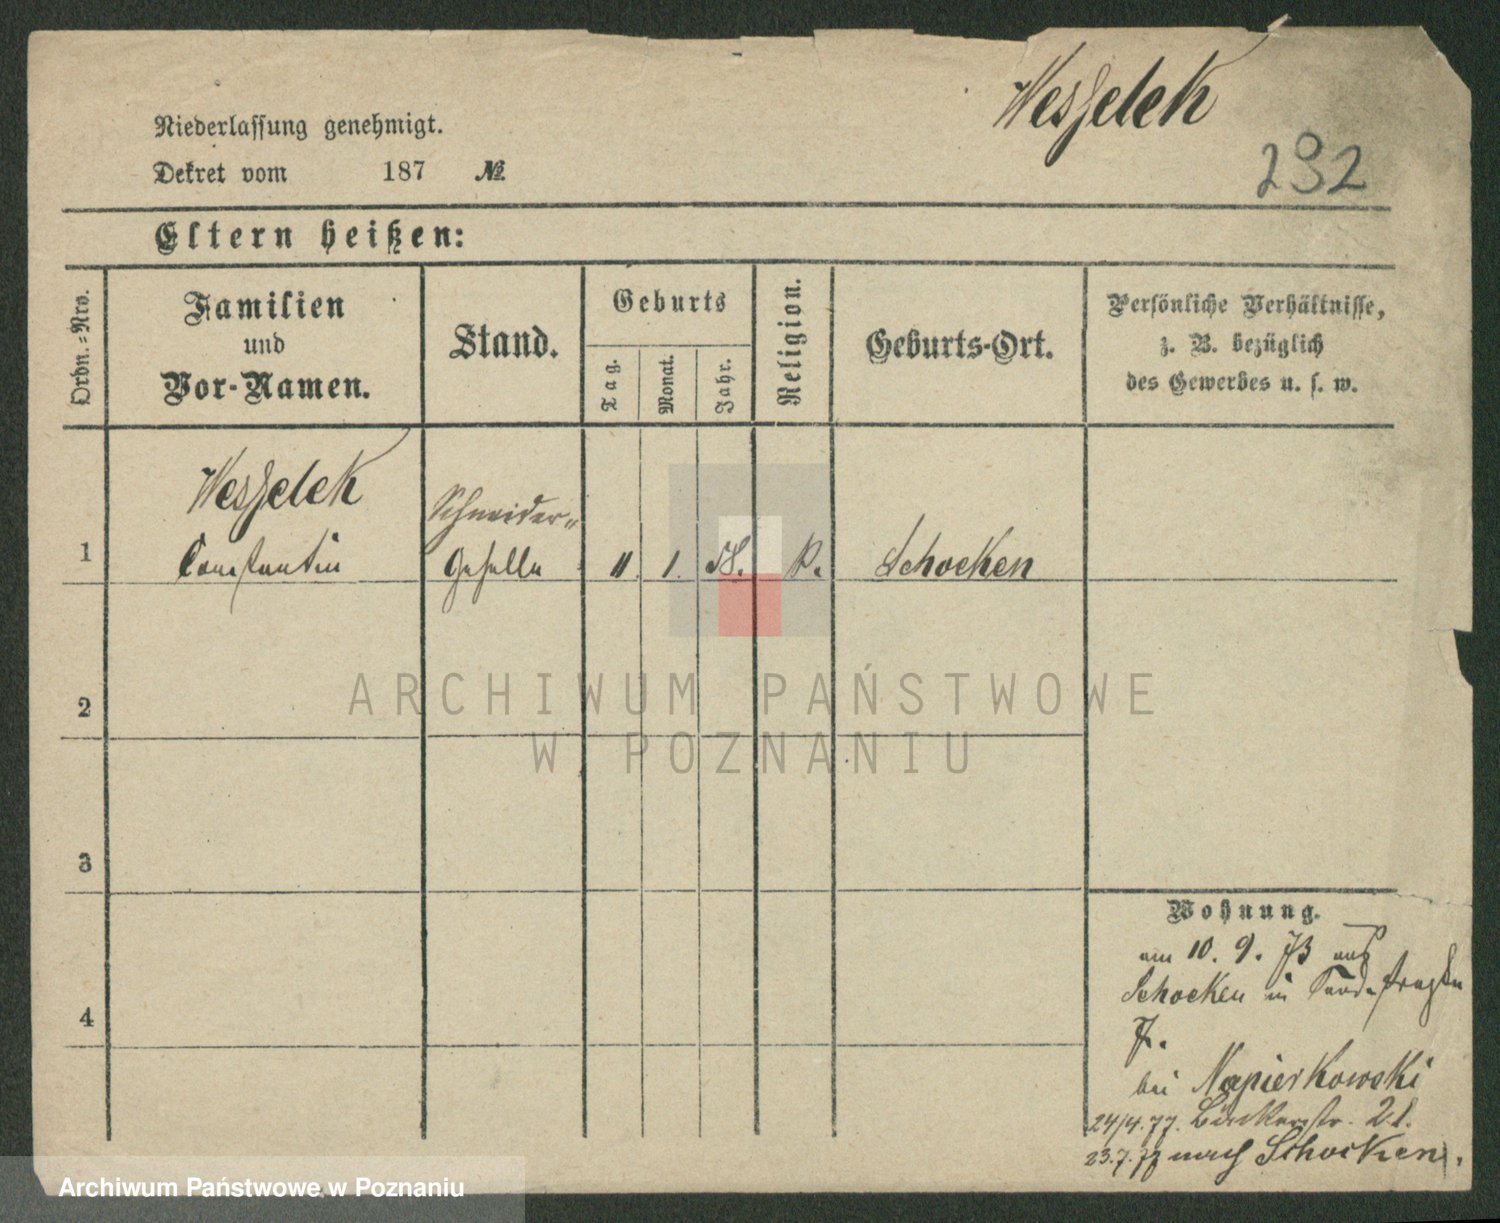 Weszelek
292
Niederlassung genehmigt.
Dekret vom 187 №
Eltern heißen:
Ordn.-Nro.
Familien
und
Vor-Namen.
Stand.
Geburts
Tag.
Monat.
Jahr.
Religion.
Geburts-Ort.
Persönliche Verhältnisse,
z. B. bezüglich
des Gewerbes u. s. w.
1
Weszelek
Constantin
Schneider-
Geselle
11.
1.
58.
K.
Schocken
2
3
4
Wohnung.
am 10. 9. 73 aus
Schocken in
7.
bei Napierkowski
24/4.77. 21.
23.7.77 nach Schocken.
ARCHIWUM PAŃSTWOWE
W POZNANIU
Archiwum Państwowe w Poznaniu